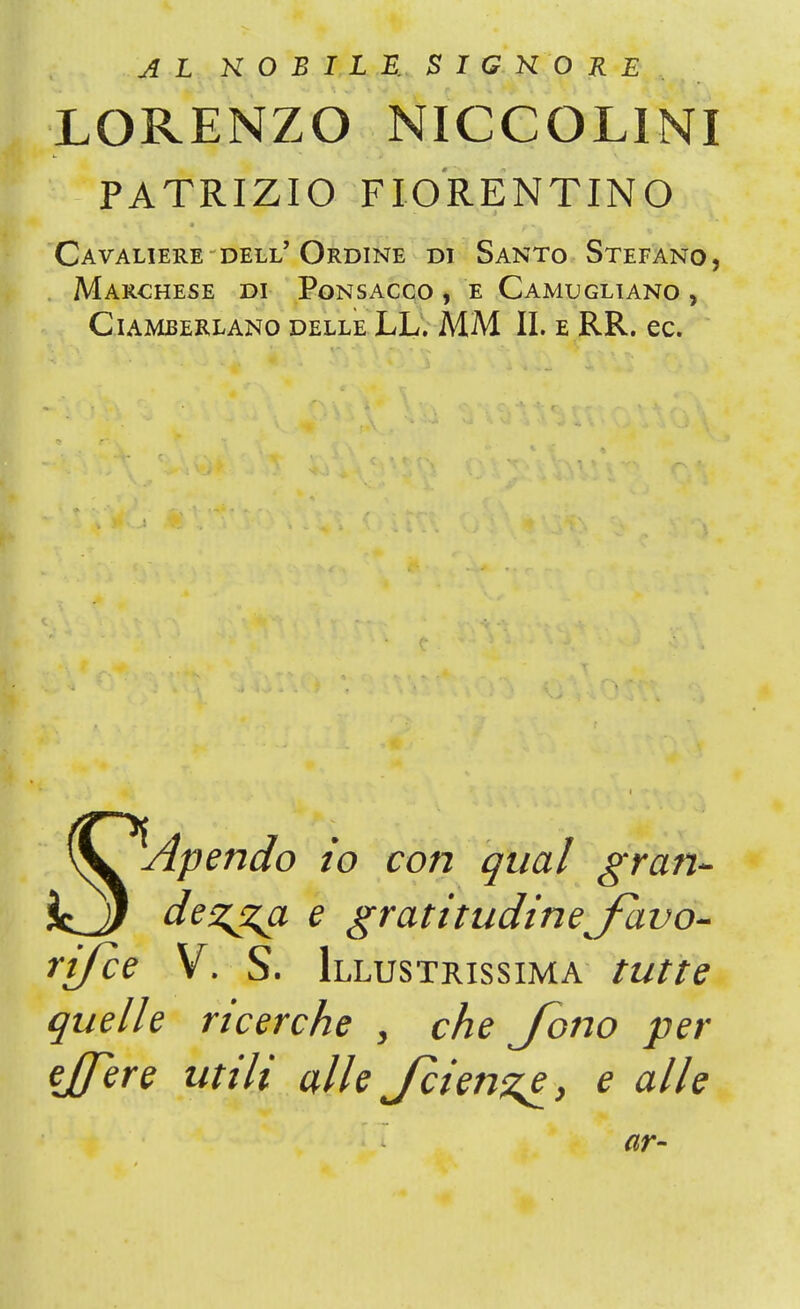 AL NOBILE SIGNORE
LORENZO NICCOLINI
PATRIZIO FIORENTINO
CAVALIERE DELL' ORDINE DI SANTO STEFANO,
MARCHESE DI PONSACCO, E CAMUGLIANO,
CIAMBERLANO DELLE LL. MM II. E RR. ec.
SApendo io con qual gran-
dezza e gratitudine favo-
riſce V. S. ILLUSTRISSIMA tutte
quelle ricerche, che ſono per
eſſere utili alle ſcienze, e alle
ar-